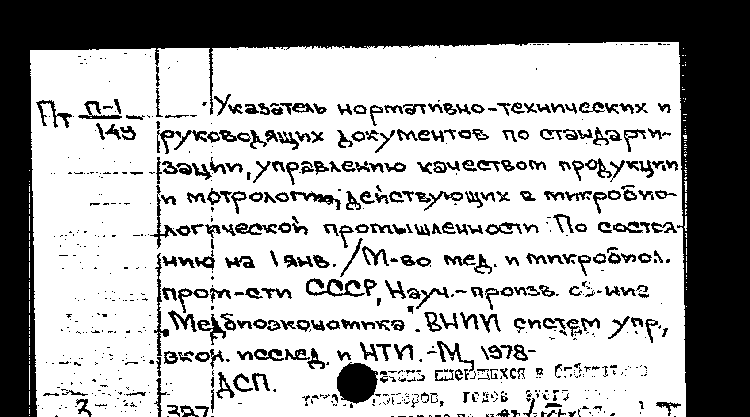 Пт П-1/149 Указатель нормативно-технических и
руководящих документов по стандарти-
зации, управлению качеством продукции
и метрологии, действующих в микробио-
логической промышленности. По состоя-
нию на 1 янв. / М-во мед. и микробиол.
пром-сти СССР, Науч.-произв. об-ние
„Медбиоэкономика". ВНИИ систем упр.,
экон. исслед. и НТИ. -М., 1978-
ДСП.
имеющихся в
номеров, годов этого
3 387